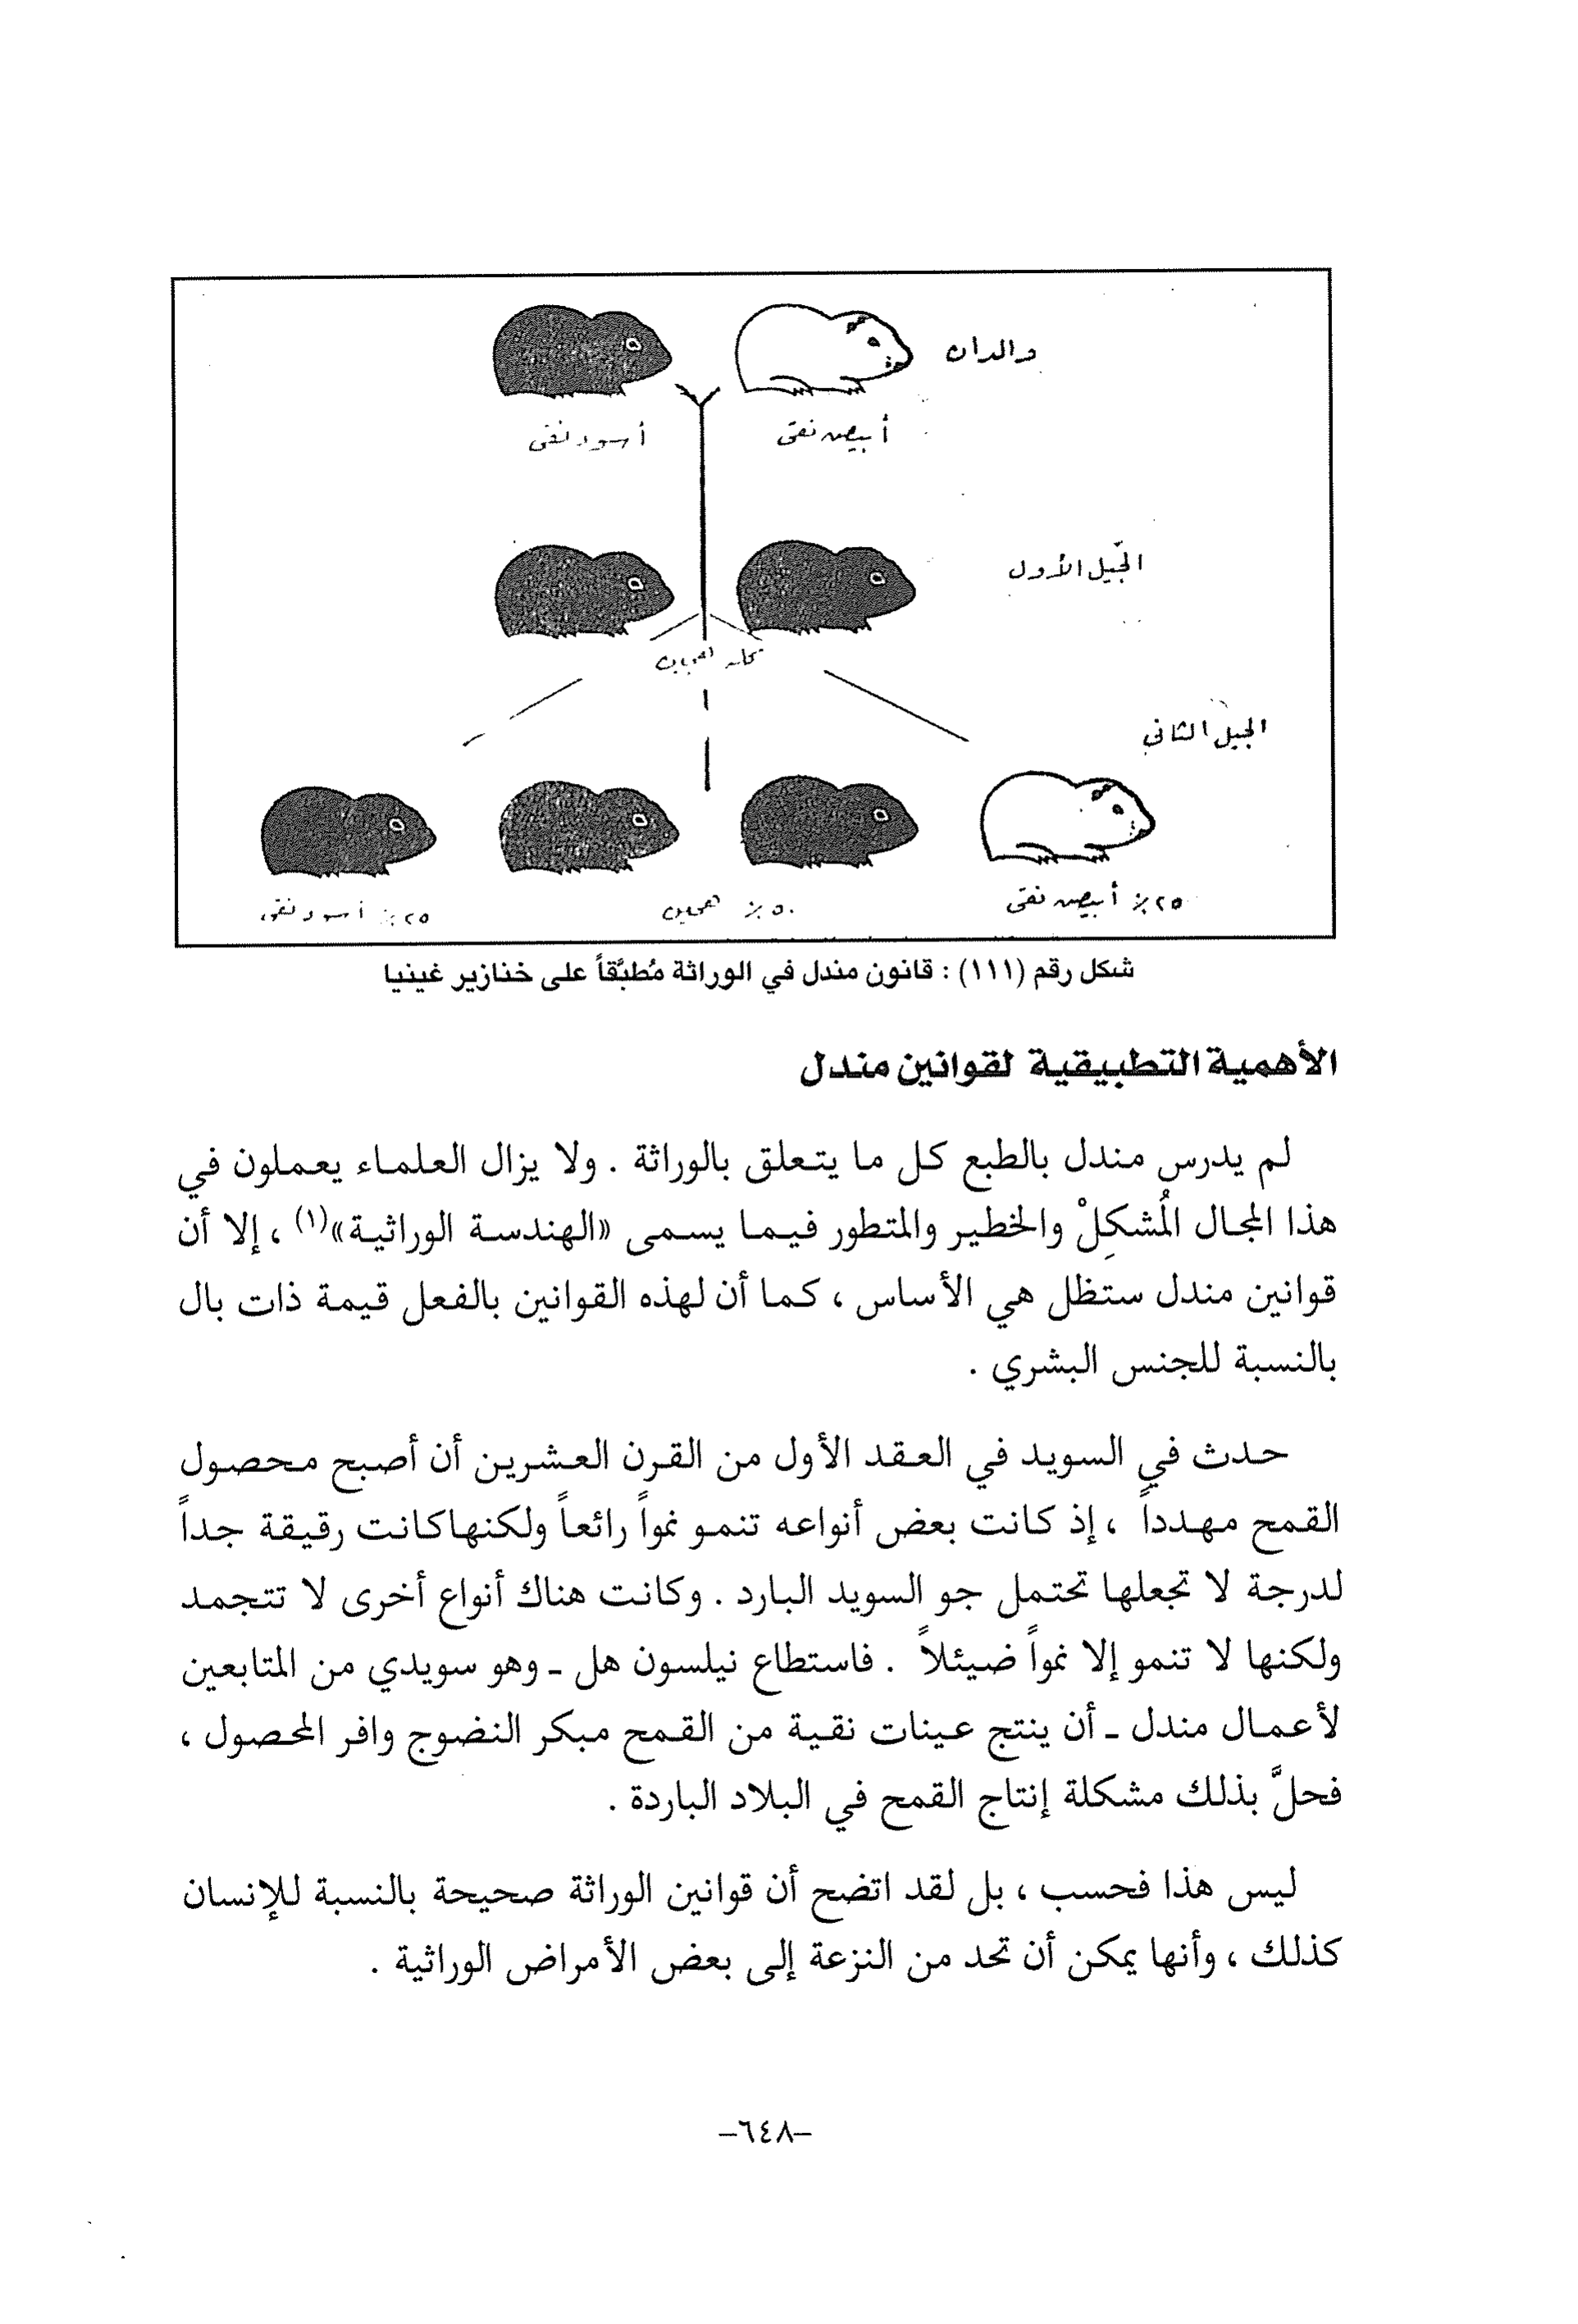 والدان
أبيض نقى
أسود نقى
الجيل الأول
هجينان
الجيل الثانى
٢٥٪ أبيض نقى
٥٠٪ هجين
٢٥٪ أسود نقى
شكل رقم (١١١) : قانون مندل في الوراثة مُطبَّقاً على خنازير غينيا
الأهمية التطبيقية لقوانين مندل
لم يدرس مندل بالطبع كل ما يتعلق بالوراثة . ولا يزال العلماء يعملون في
هذا المجال المُشكِلْ والخطير والمتطور فيما يسمى «الهندسة الوراثية»(١) ، إلا أن
قوانين مندل ستظل هي الأساس ، كما أن لهذه القوانين بالفعل قيمة ذات بال
بالنسبة للجنس البشري .
حدث في السويد في العقد الأول من القرن العشرين أن أصبح محصول
القمح مهدداً ، إذ كانت بعض أنواعه تنمو نمواً رائعاً ولكنها كانت رقيقة جداً
لدرجة لا تجعلها تحتمل جو السويد البارد . وكانت هناك أنواع أخرى لا تتجمد
ولكنها لا تنمو إلا نمواً ضيئلاً . فاستطاع نيلسون هل ـ وهو سويدي من المتابعين
لأعمال مندل ـ أن ينتج عينات نقية من القمح مبكر النضوج وافر المحصول ،
فحلَّ بذلك مشكلة إنتاج القمح في البلاد الباردة .
ليس هذا فحسب ، بل لقد اتضح أن قوانين الوراثة صحيحة بالنسبة للإنسان
كذلك ، وأنها يمكن أن تحد من النزعة إلى بعض الأمراض الوراثية .
–٦٤٨–